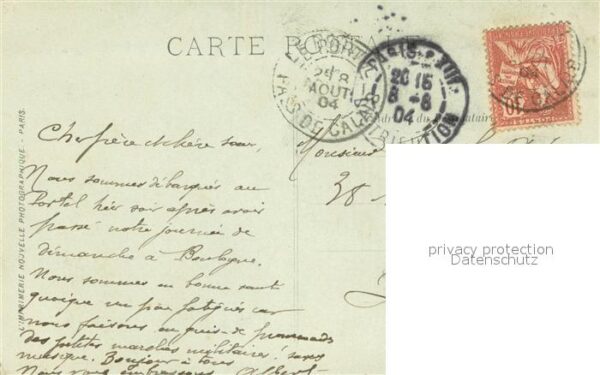 CARTE POSTALE
LE PORTEL
25 8
AOUT
04
PAS DE CALAIS
PARIS XVII
20 15
8-8
04
DISTRIBUTION
10
Adresse du Destinataire
L'IMPRIMERIE NOUVELLE PHOTOGRAPHIQUE - PARIS.
Monsieur
38
privacy protection
Datenschutz
Cher frère et chère sœur,
Nous sommes débarqués au
Portel hier soir après avoir
passé notre journée de
dimanche à Boulogne.
Nous sommes en bonne santé
quoique un peu fatigués car
nous faisons en guise de promenade
des petites marches militaires sans
musique. Bonjour à tous
Nous vous embrassons Albert